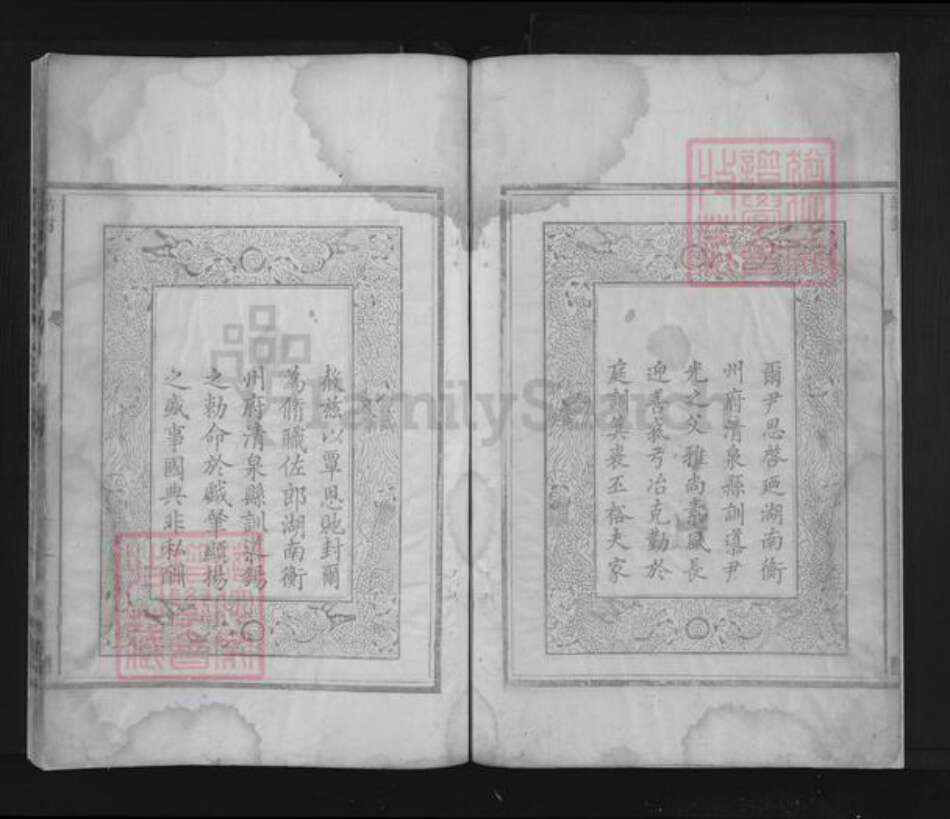 爾尹思啓廼湖南衡
州府清泉縣訓導尹
光之父雅尚素風長
迎善氣弓冶克勤於
庭訓箕裘丕裕夫家
茲以覃恩貤封爾
為脩職佐郎湖南衡
州府清泉縣訓導錫
之勅命於戲肇顯揚
之盛事國典非私酬
FamilySearch